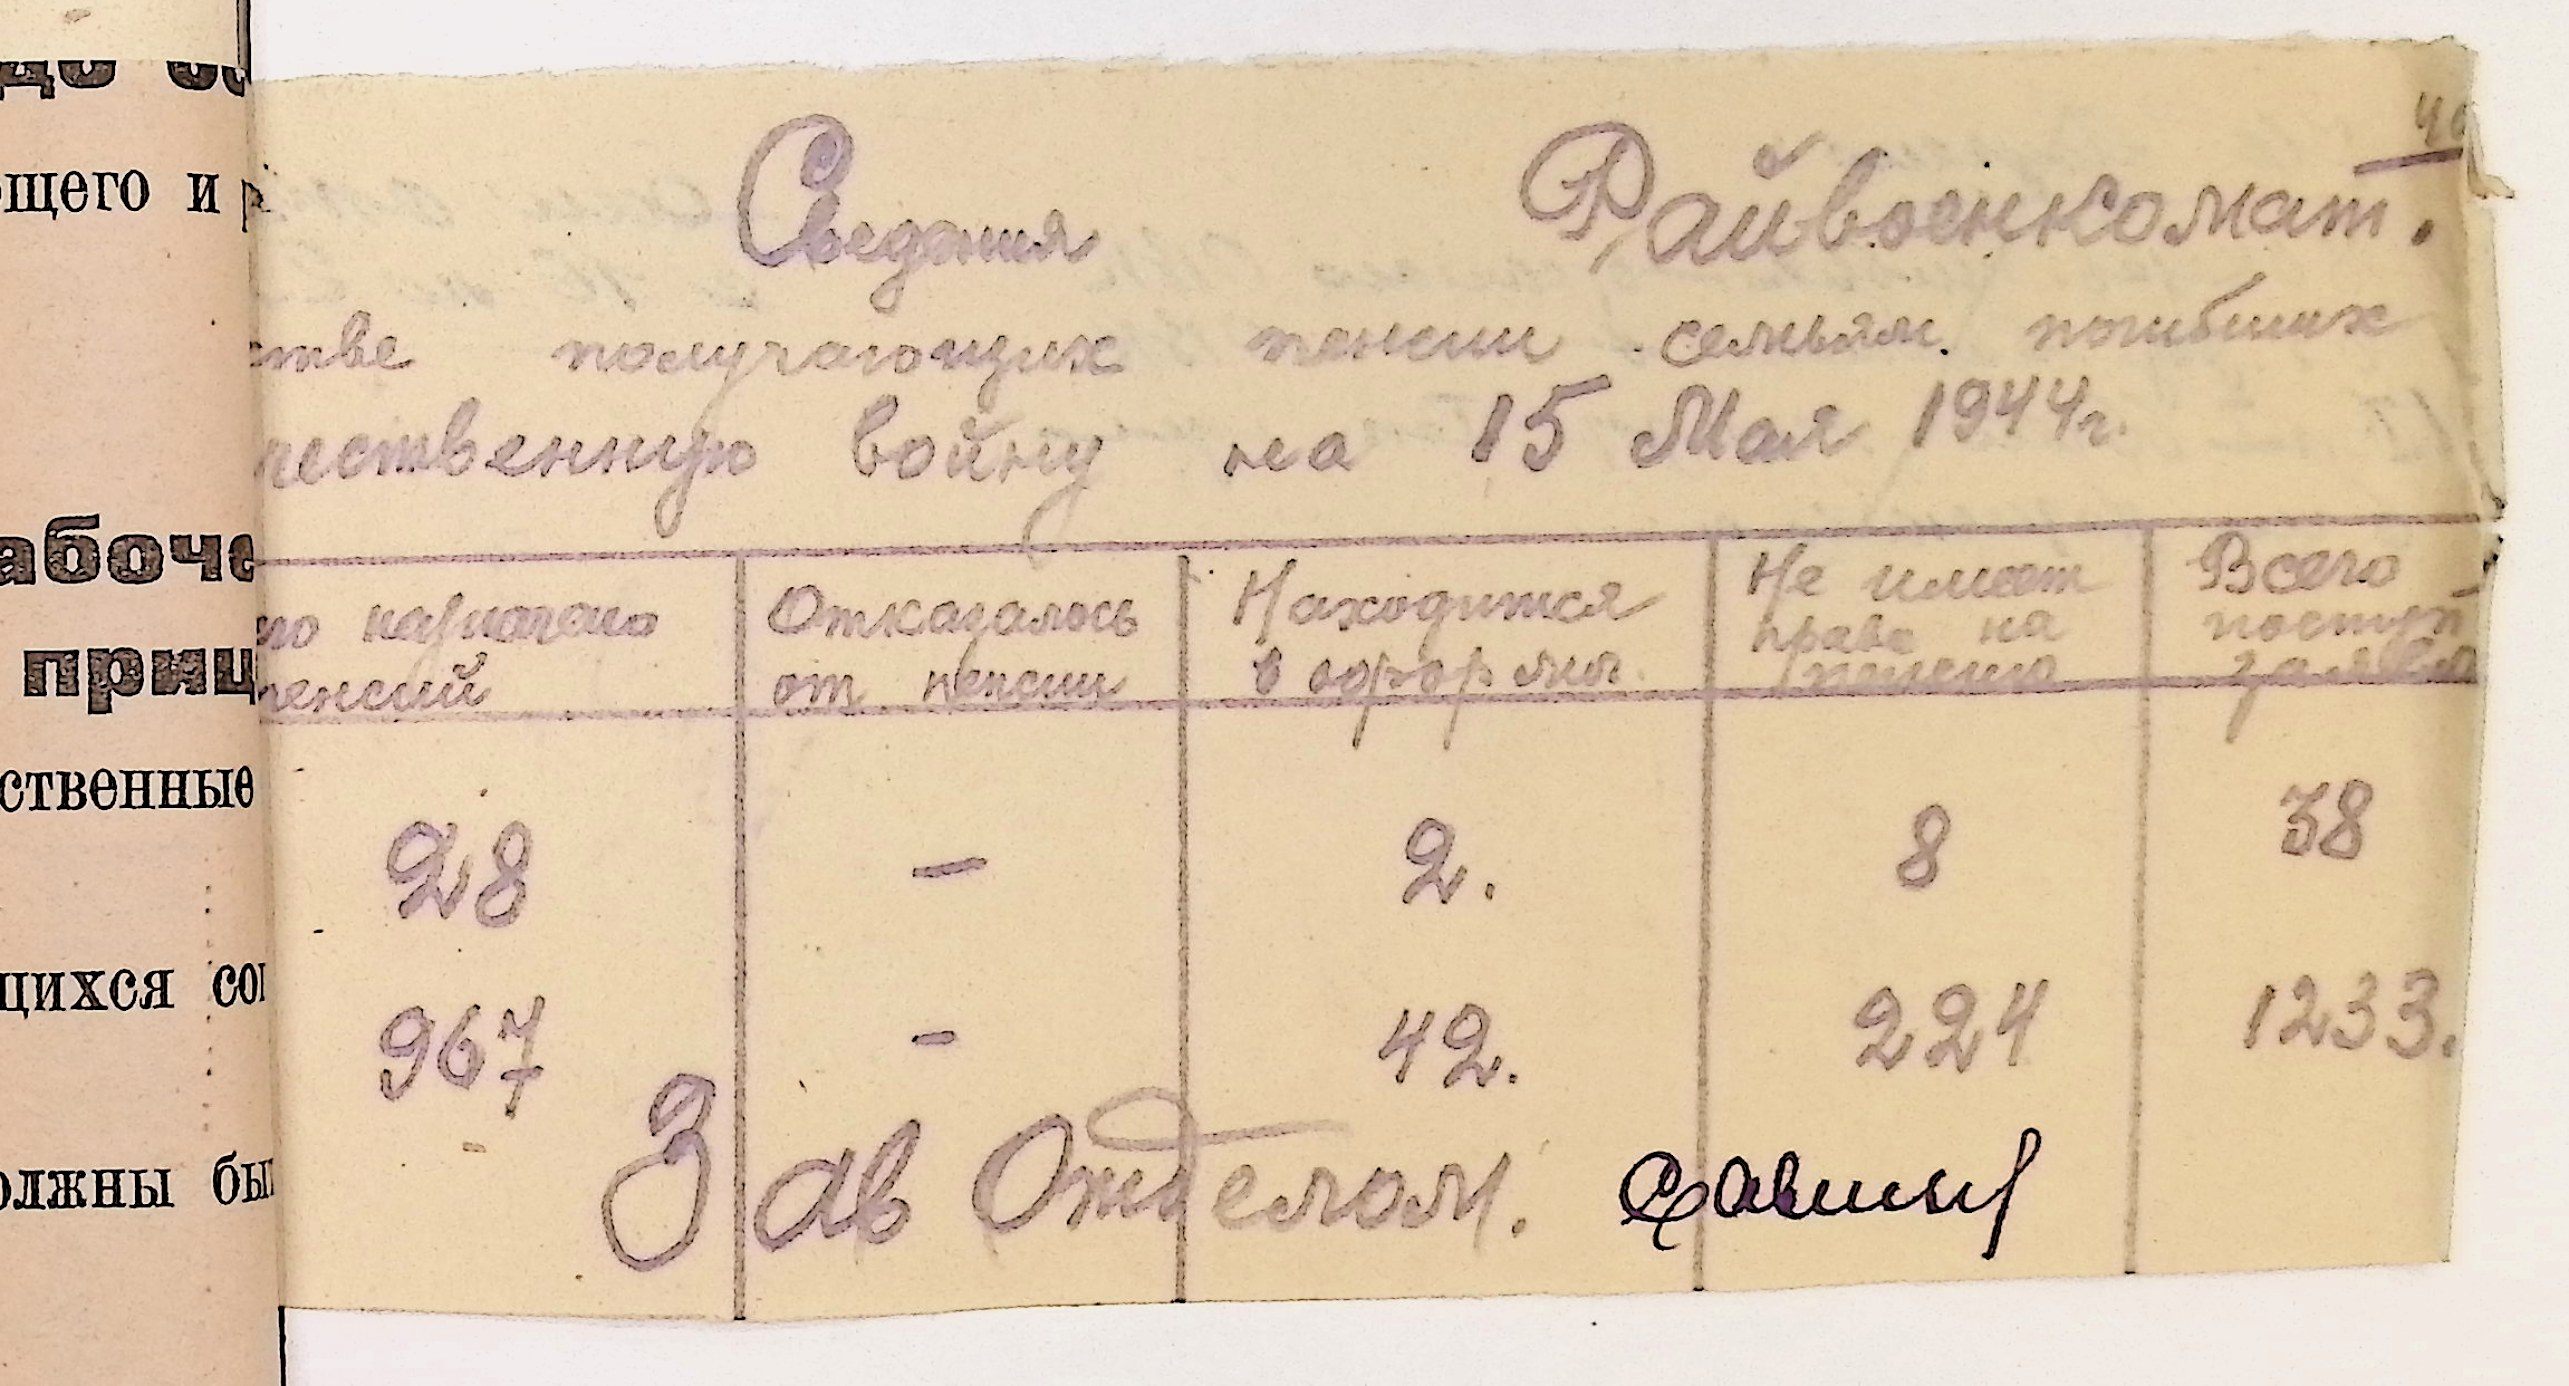 ощего и
абоч
приц
ственные
щихся
олжны бы
Сведания Райвоенкомат.
стве получающих пенсии семьям погибших
чественную войну на 15 Мая 1944г.
но назначено пенсий
Отказалось от пенсии
Находится в оформл.
Не имеет права на пенсию
Всего поступ заявл
28 – 2. 8 38
967 – 42. 224 1233.
Зав Отделом.